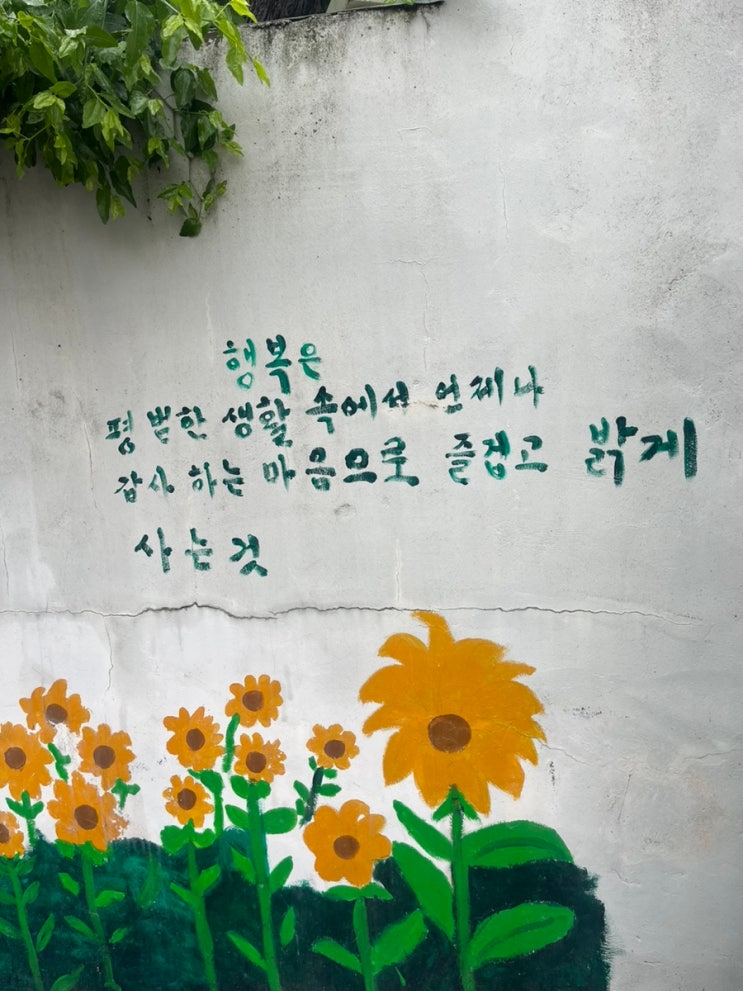 행복은
평범한 생활 속에서 언제나
감사 하는 마음으로 즐겁고 밝게
사는것